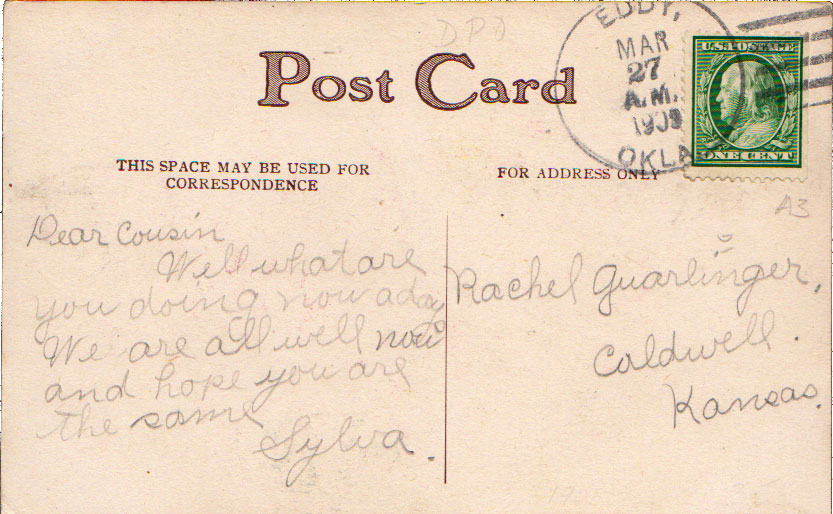 DPA
Post Card
EDDY,
MAR
27
A.M.
1909
OKLA
U.S. POSTAGE
ONE CENT
THIS SPACE MAY BE USED FOR
CORRESPONDENCE
FOR ADDRESS ONLY
A3
Dear Cousin
Well what are
you doing now a day
We are all well now
and hope you are
the same
Sylva.
Rachel Guarlinger,
Caldwell.
Kansas.